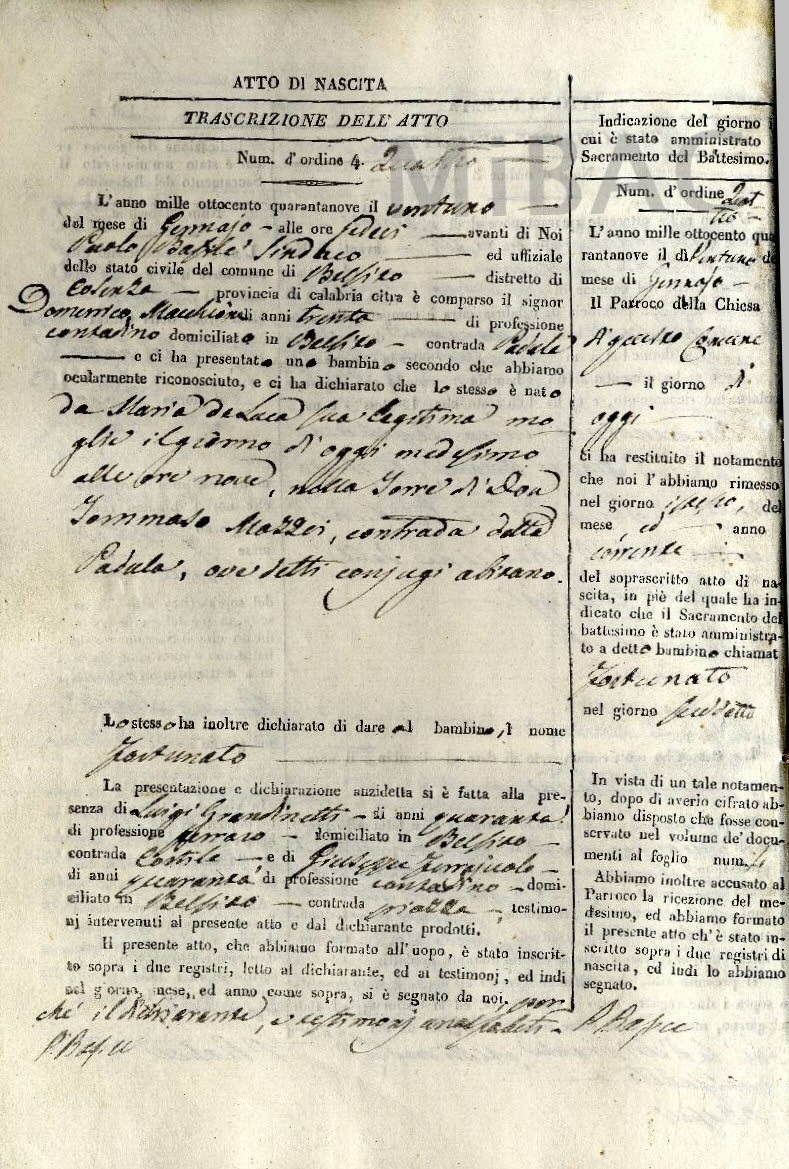 ATTO DI NASCITA
TRASCRIZIONE DELL' ATTO
Num. d' ordine 4. Quattro
L'anno mille ottocento quarantanove il ventuno
del mese di Gennajo - alle ore sedeci - avanti di Noi
Paolo Sindaco ed uffiziale
dello stato civile del comune di Belsito distretto di
Cosenza - provincia di calabria citra è comparso il signor
Domenico di anni trenta di professione
contadino domiciliato in Belsito - contrada Padula
e ci ha presentato uno bambino secondo che abbiamo
ocularmente riconosciuto, e ci ha dichiarato che lo stesso è nato
da Maria de Luca sua legitima mo
glie il giorno di oggi medesimo
alle ore nove, nella Torre di Don
Tommaso Mazzei, contrada detta
Padula, ove detti conjugi abitano.
Lo stesso ha inoltre dichiarato di dare al bambino, l nome
Fortunato
La presentazione e dichiarazione anzidetta si è fatta alla pre-
senza di Luigi Grandinetti - di anni quaranta
di professione ferraro - domiciliato in Belsito -
contrada - e di Giuseppe
di anni quaranta di professione contadino - domi-
ciliato in Belsito - contrada piazza - testimo-
nj intervenuti al presente atto e dal dichiarante prodotti.
Il presente atto, che abbiamo formato all'uopo, è stato inscrit-
to sopra i due registri, letto al dichiarante, ed ai testimonj, ed indi
nel giorno, mese, ed anno come sopra, si è segnato da noi, per
ché il dichiarante, e testimonj analfabeti -
Indicazione del giorno
cui è stato amministrato
Sacramento del Battesimo.
Num. d' ordine Quat
tro -
L'anno mille ottocento qua
rantanove il dì Ventuno de
mese di Gennajo -
Il Parroco della Chiesa
di questo Comune
- il giorno di
oggi
ci ha restituito il notamento
che noi l'abbiamo rimesso
nel giorno istesso, del
mese ed anno
corrente
del soprascritto atto di na-
scita, in piè del quale ha in-
dicato che il Sacramento del
battesimo è stato amministra-
to a detto bambino chiamat
Fortunato
nel giorno suddetto
In vista di un tale notamen-
to, dopo di averlo cifrato ab-
biamo disposto che fosse con-
servato nel volume de' docu-
menti al foglio num. 4
Abbiamo inoltre accusato al
Parroco la ricezione del me-
desimo, ed abbiamo formato
il presente atto ch'è stato in-
scritto sopra i due registri di
nascita, ed indi lo abbiamo
segnato.